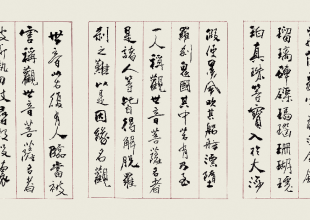 瑠璃硨磲瑪瑙珊瑚琥
珀真珠等寶入於大海
假使黑風吹其船舫漂墮
羅剎鬼國其中若有乃至
一人稱觀世音菩薩名者
是諸人等皆得解脫羅
剎之難以是因緣名觀
世音若復有人臨當被
害稱觀世音菩薩名者